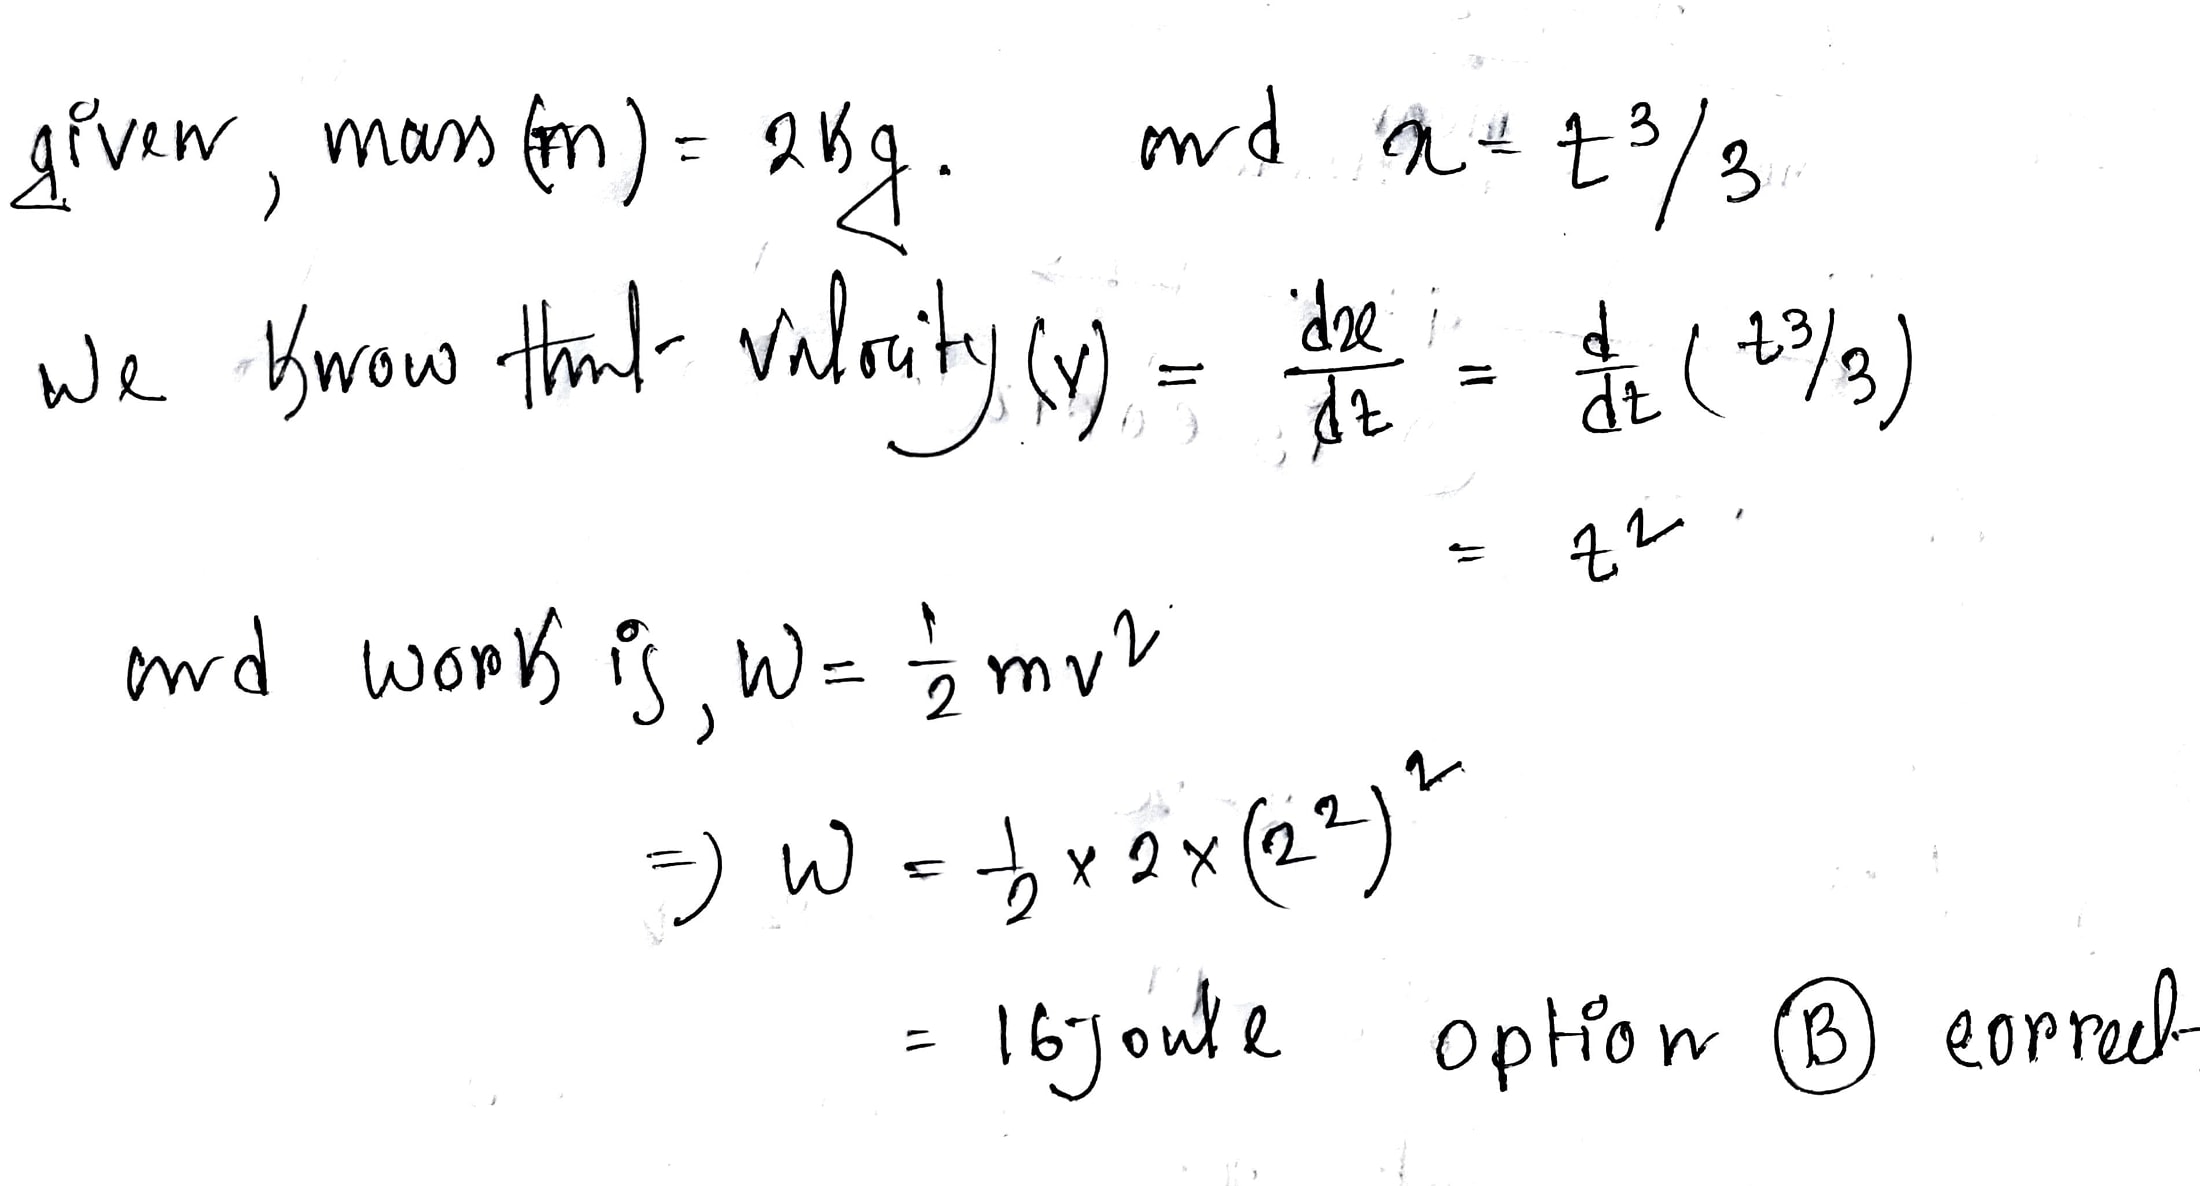 given, mass (m) = 2kg. and x = t³/3
we know that velocity (v) = dx/dt = d/dt (t³/3)
= t²
and work is, W = 1/2 mv²
⇒ W = 1/2 × 2 × (2²)²
= 16 Joule option (B) correct